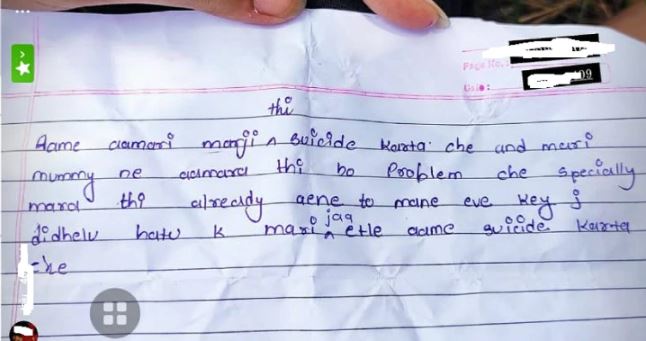 Page No.:
Date: 09
thi
Aame aamari marji ^ suicide karta che and mari
mummy ne aamara thi bo Problem che specially
mara thi already aene to mane eve key j
jaa
didhelu hatu k mari ^ etle aame suicide karta
che